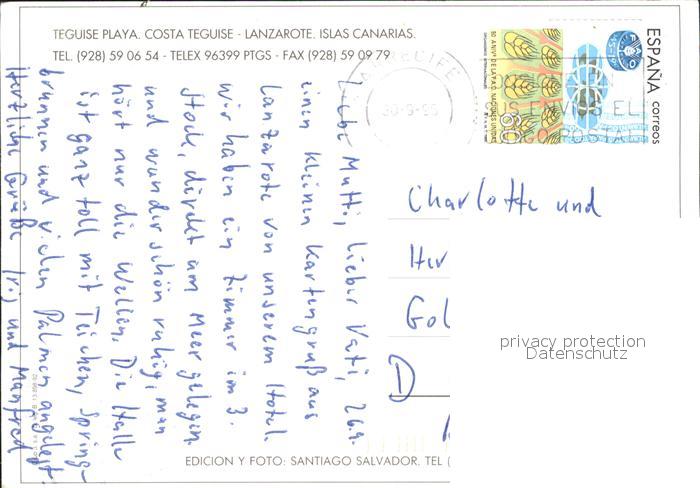 TEGUISE PLAYA. COSTA TEGUISE - LANZAROTE. ISLAS CANARIAS.
TEL. (928) 59 06 54 - TELEX 96399 PTGS - FAX (928) 59 09 79
ESPAÑA correos
FAO
80
ARRECIFE
Liebe Mutti, lieber Vati, 26.9.
einen kleinen Kartengruß aus
Lanzarote von unserem Hotel.
Wir haben ein Zimmer im 3.
Stock, direkt am Meer gelegen.
und wunderschön ruhig, man
hört nur die Wellen. Die Halle
ist ganz toll mit Teichen, Spring-
brunnen und vielen Palmen angelegt.
Herzliche Grüße und Manfred
Charlotte und
Her
Gol
D
privacy protection
Datenschutz
EDICION Y FOTO: SANTIAGO SALVADOR. TEL (